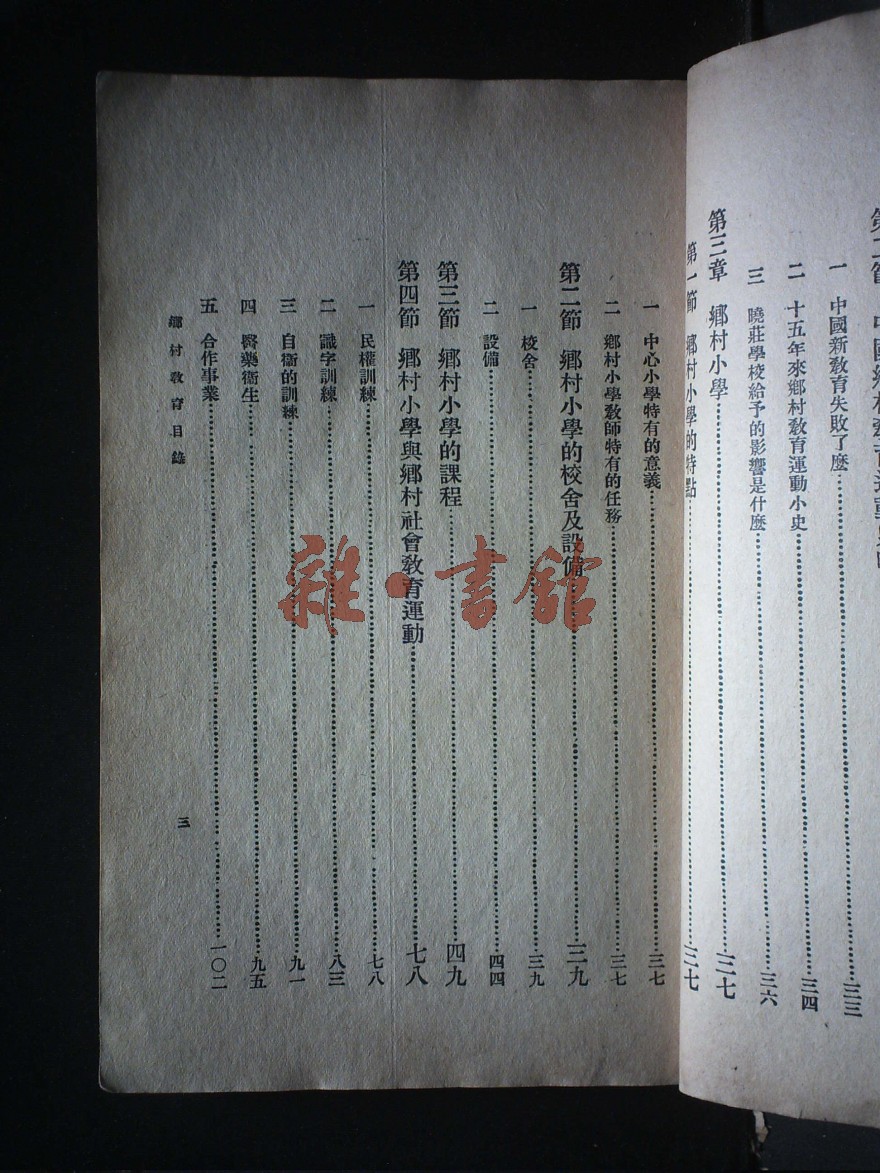 一　中國新教育失敗了麼……三三
二　十五年來鄉村教育運動小史……三四
三　曉莊學校給予的影響是什麼……三六
第三章　鄉村小學……三七
第一節　鄉村小學的特點……三七
一　中心小學特有的意義……三七
二　鄉村小學教師特有的任務……三七
第二節　鄉村小學的校舍及設備……三九
一　校舍……三九
二　設備……四四
第三節　鄉村小學的課程……四九
第四節　鄉村小學與鄉村社會教育運動……七八
一　民權訓練……七八
二　識字訓練……八三
三　自衞的訓練……九一
四　醫藥衞生……九五
五　合作事業……一〇二
鄉村教育目錄
三
雜·書館